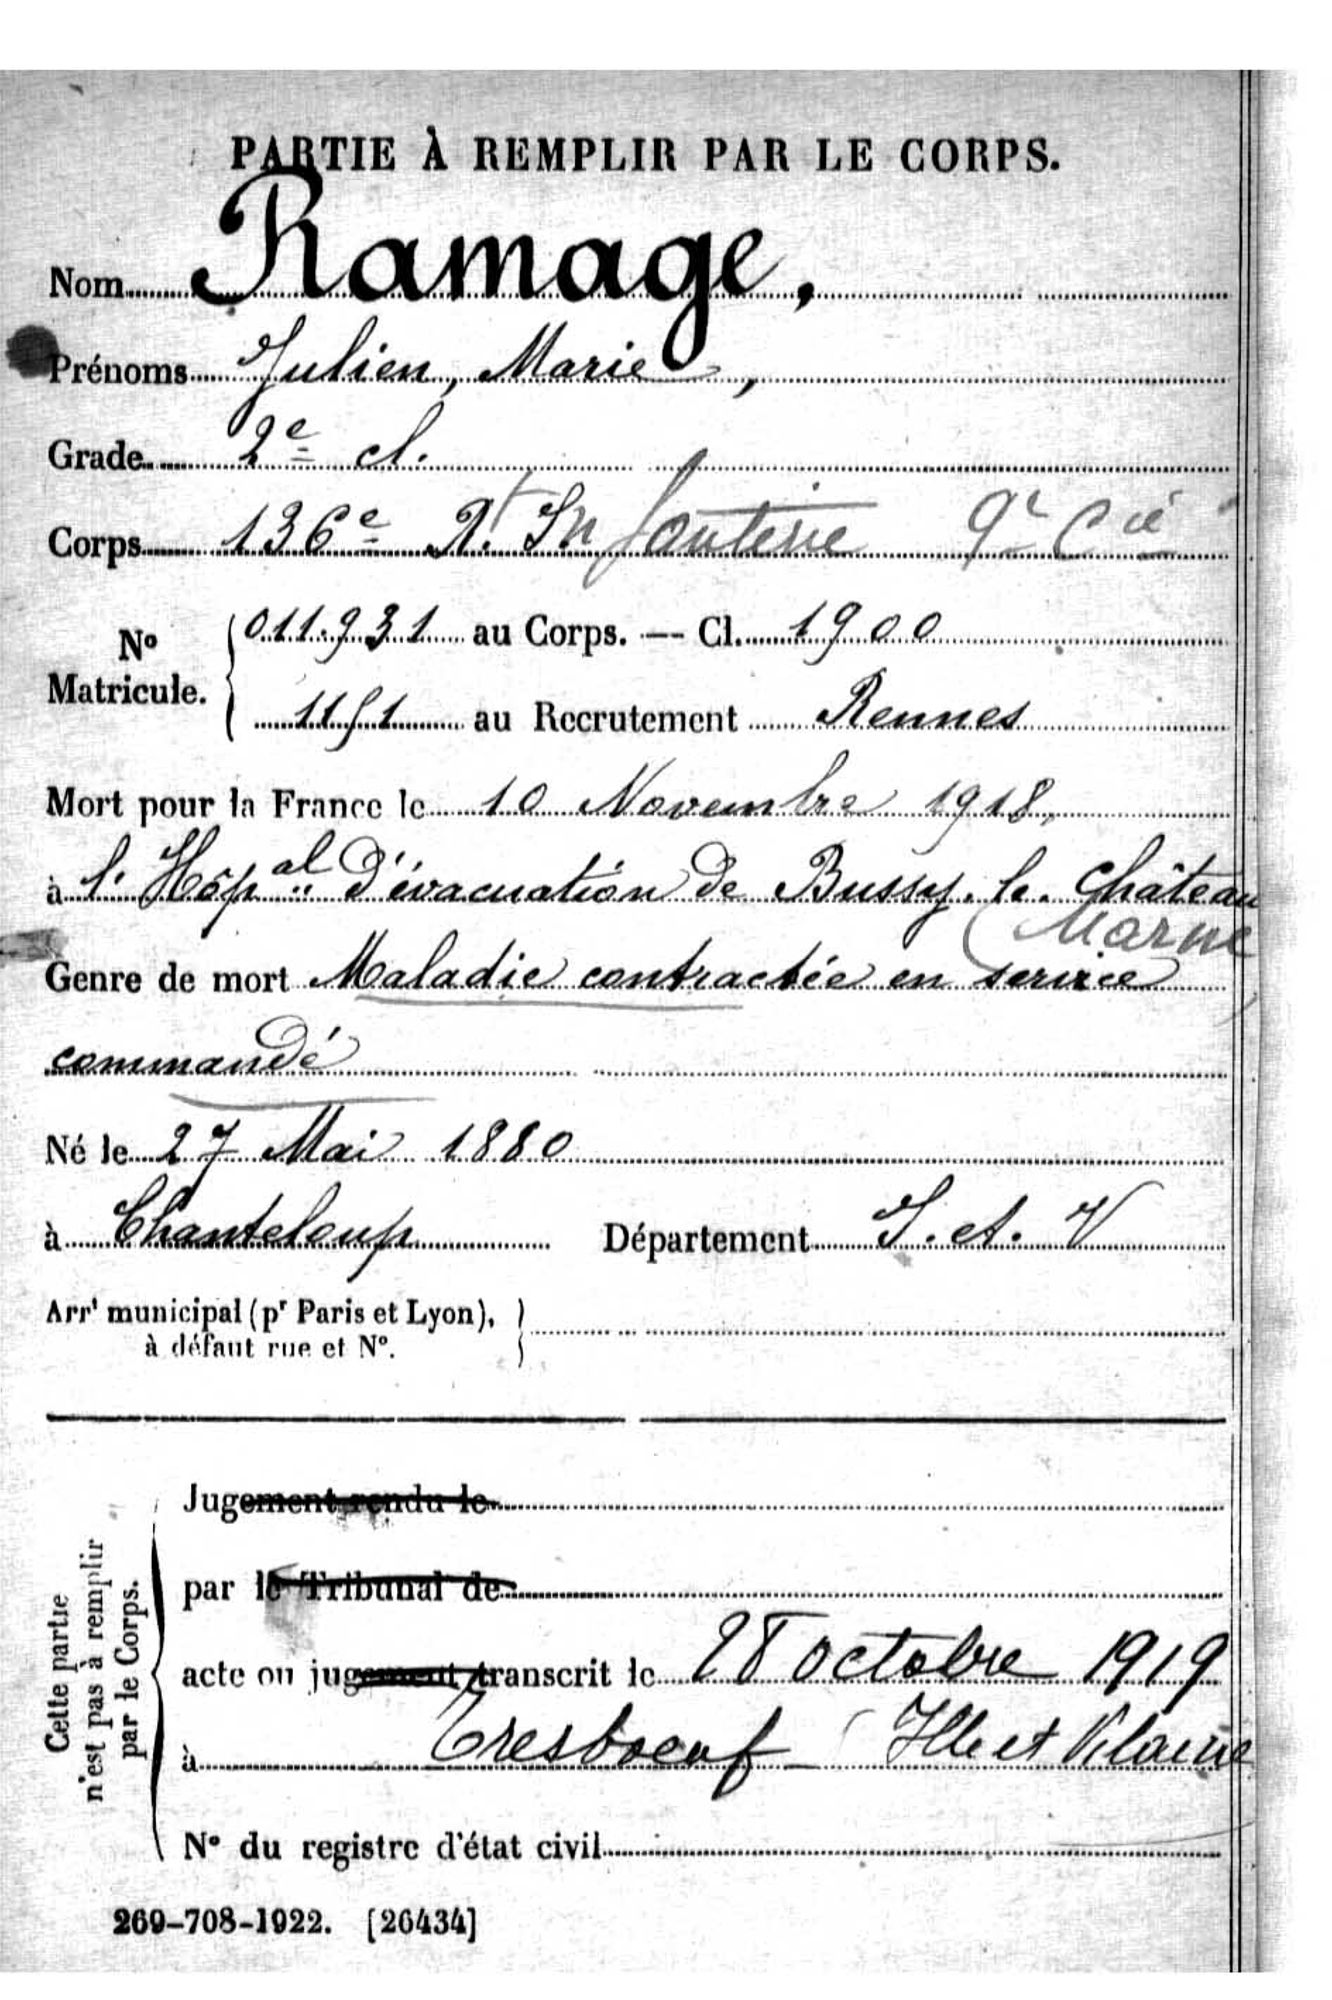 PARTIE À REMPLIR PAR LE CORPS.
Nom Ramage,
Prénoms Julien, Marie,
Grade 2e cl.
Corps 136e Rt Infanterie 9e Cie
No Matricule. 011.931 au Corps. — Cl. 1900
1151 au Recrutement Rennes
Mort pour la France le 10 Novembre 1918,
à l'Hôpal d'évacuation de Bussy-le-Château
(Marne
Genre de mort Maladie contractée en service
commandé
Né le 27 Mai 1880
à Chanteloup Département I. et. V
Arrt municipal (pr Paris et Lyon),
à défaut rue et N°.
Cette partie
n'est pas à remplir
par le Corps.
Jugement rendu le
par le Tribunal de
acte ou jugement transcrit le 28 octobre 1919
à Tresboeuf (Ille et Vilaine
N° du registre d'état civil
269-708-1922. [26434]